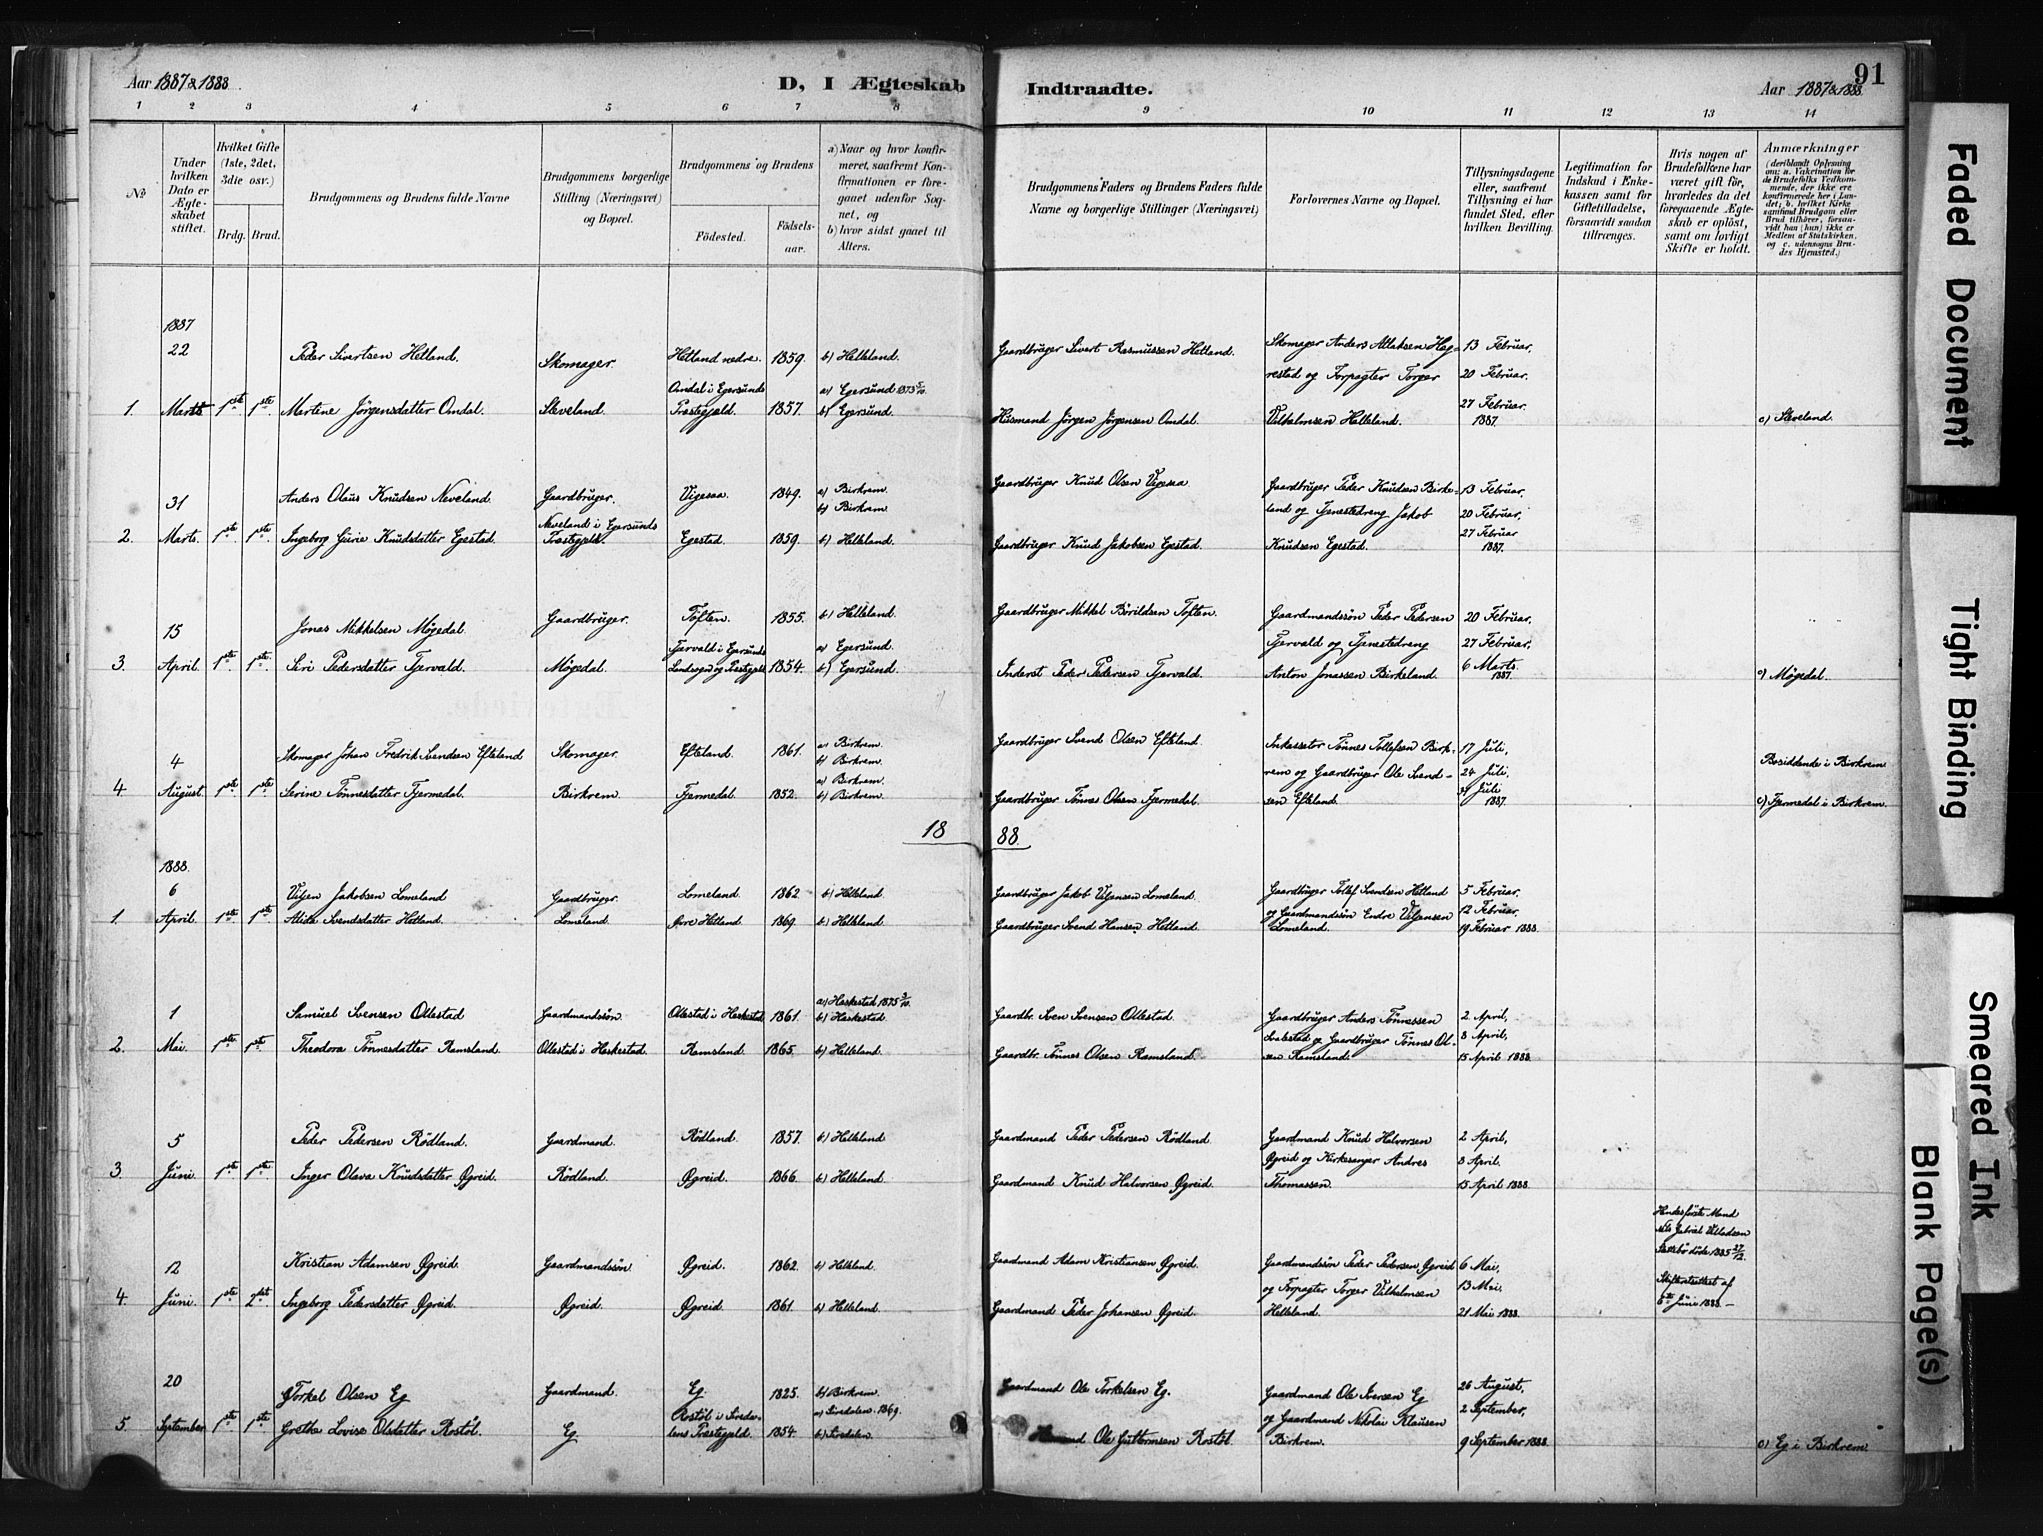 Aar 1887 & 1888.
D, I Ægteskab Indtraadte.
Aar 1887 & 1888.
91
1 2 3 4 5 6 7 8 9 10 11 12 13 14
No
Under hvilken Dato er Ægteskabet stiftet.
Hvilket Gifte (1ste, 2det, 3die osv.)
Brdg. Brud.
Brudgommens og Brudens fulde Navne
Brudgommens borgerlige Stilling (Næringsvei) og Bopæl.
Brudgommens og Brudens
Födested.
Födsels-aar.
a) Naar og hvor konfirmeret, saafremt Konfirmationen er foregaaet udenfor Sognet, og
b) hvor sidst gaaet til Alters.
Brudgommens Faders og Brudens Faders fulde Navne og borgerlige Stillinger (Næringsvei)
Forlovernes Navne og Bopæl.
Tillysningsdagene eller, saafremt Tillysning ei har fundet Sted, efter hvilken Bevilling.
Legitimation for Indskud i Enkekassen samt for Giftetilladelse, forsaavidt saadan tiltrænges.
Hvis nogen af Brudefolkene har været gift för, hvorledes da det foregaaende Ægteskab er oplöst, samt om lovligt Skifte er holdt.
Anmærkninger
(deriblandt Oplysning om: a. Vakcination for de Brudefolks Vedkommende, der ikke ere konfirmerede her i Landet; b. hvilket Kirkesamfund Brudgom eller Brud tilhører, forsaavidt han (hun) ikke er Medlem af Statskirken, og c. udensogns Brudes Hjemsted.)
1887
1. 22 Marts 1ste 1ste
Peder Sivertsen Hetland. Skomager. Hetland nedre. 1859. b) Helleland.
Martine Jörgensdatter Omdal. Sleveland. Omdal i Egersunds Præstegjeld. 1857. a) Egersund 1873 5/10. b) Egersund.
Gaardbruger Sivert Rasmussen Hetland.
Husmand Jörgen Jörgensen Omdal.
Skomager Anders Atlaksen Hegrestad og Forpagter Torger Vilhelmsen Helleland.
13 Februar, 20 Februar, 27 Februar. 1887.
c) Sleveland.
2. 31 Marts. 1ste 1ste
Anders Olaus Knudsen Neveland. Gaardbruger. Vigesaa. 1849. a) Birkrem. b) Birkrem
Ingeborg Gurie Knudsdatter Egestad. Neveland i Egersunds Præstegjeld. Egestad. 1859. b) Helleland.
Gaardbruger Knud Olsen Vigesaa
Gaardbruger Knud Jakobsen Egestad.
Gaardbruger Peder Knudsen Birkeland og Tjenestedreng Jakob Knudsen Egestad.
13 Februar, 20 Februar, 27 Februar 1887.
3. 15 April. 1ste 1ste
Jonas Mikkelsen Møgedal. Gaardbruger. Toften. 1855. b) Helleland.
Siri Pedersdatter Tjervald. Møgedal. Tjervald i Egersunds Landsogn og Præstegjeld. 1854. a) Egersund. b) Egersund.
Gaardbruger Mikkel Börildsen Toften.
Inderst Peder Pedersen Tjervald.
Gaardmandssön Peder Pedersen Tjervald og Tjenestedreng Anton Jonassen Birkeland.
20 Februar, 27 Februar, 6 Marts. 1887.
c) Møgedal.
4. 4 August 1ste 1ste
Skomager Johan Fredrik Svendsen Efteland Skomager. Efteland. 1861. a) Birkrem. b) Birkrem.
Serine Tönnesdatter Tjermedal. Birkrem. Tjermedal. 1852. a) Birkrem. b) Birkrem.
Gaardbruger Svend Olsen Efteland
Gaardbruger Tönnes Olsen Tjermedal
Inkassator Tönnes Tollefsen Birkrem og Gaardbruger Ole Svendsen Efteland.
17 Juli, 24 Juli, 31 Juli 1887.
Bosiddende i Birkrem
c) Tjermedal i Birkrem.
18 88.
1888.
1 6 April. 1ste 1ste
Viljen Jakobsen Lomeland Gaardbruger. Lomeland 1862 b) Helleland.
Alida Svendsdatter Hetland. Lomeland. Øvre Hetland 1869. b) Helleland.
Gaardbruger Jakob Viljensen Lomeland.
Gaardbruger Svend Hansen Hetland.
Gaardbruger Tollef Svendsen Hetland og Gaardmandssön Endre Viljensen Lomeland.
5 Februar, 12 Februar. 19 Februar 1888.
2. 1 Mai. 1ste 1ste
Samuel Svensen Ollestad Gaardmandssön Ollestad i Heskestad 1861. a) Heskestad 1875 3/10. b) Heskestad
Theodora Tönnesdatter Ramsland. Ollestad i Heskestad. Ramsland. 1865. b) Helleland.
Gaardbr. Sven Svensen Ollestad.
Gaardbr. Tönnes Olsen Ramsland.
Gaardbruger Anders Tönnessen og Gaardbruger Tönnes Olsen Ramsland.
2 April, 8 April, 15 April 1888.
3. 5 Juni. 1ste 1ste
Peder Pedersen Rödland. Gaardmand. Rödland. 1857. b) Helleland
Inger Olava Knudsdatter Øgreid. Rödland. Øgreid. 1866. b) Helleland.
Gaardmand Peder Pedersen Rödland.
Gaardmand Knud Halvorsen Øgreid.
Gaardmand Knud Halvorsen Øgreid og Kirkesanger Andres Thomassen.
2 April, 8 April. 15 April 1888.
4. 12 Juni. 1ste 2det
Kristian Adamsen Øgreid. Gaardmandssön. Øgreid. 1862. b) Helleland.
Ingeborg Pedersdatter Øgreid. Øgreid. Øgreid 1861. b) Helleland.
Gaardmand Adam Kristiansen Øgreid.
Gaardmand Peder Johansen Øgreid.
Gaardmandssön Peder Pedersen Øgreid og Forpagter Torger Vilhelmsen Helleland.
6 Mai, 13 Mai, 21 Mai 1888.
Hendes förste Mand Nils Gabriel döde 1885 27/12.
Skifteattest af 6te Juni 1888.
5. 20 September 1ste 1ste
Torkel Olsen Eg Gaardmand. Eg. 1825. b) Birkrem.
Grethe Lovise Olsdatter Rostöl. Eg Rostöl i Siredalens Præstegjeld 1854. a) Siredalen. 1869. b) Siredalen.
Gaardmand Ole Torkelsen Eg.
Husmand Ole Guttormsen Rostöl.
Gaardmand Ole Iversen Eg og Gaardmand Nikolai Klausen Birkrem.
26 August, 2 September, 9 September 1888.
c) Eg i Birkrem.
Faded Document
Tight Binding
Smeared Ink
Blank Page(s)